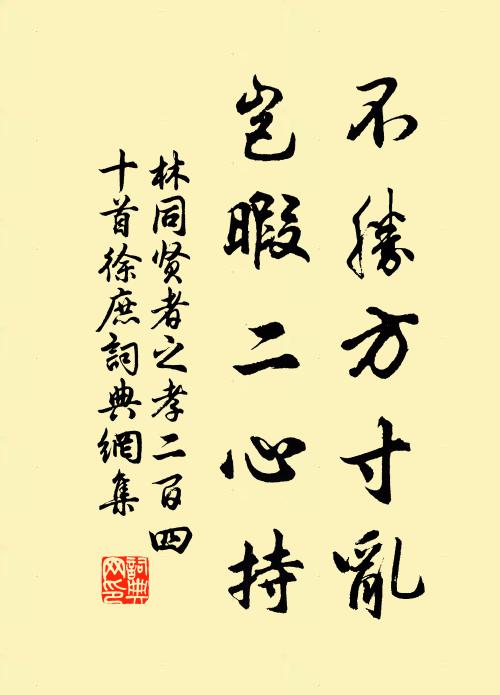 不勝方寸亂
豈暇二心持
林同贤者之孝二百四
十首徐庶詞典網集
詞典
网印